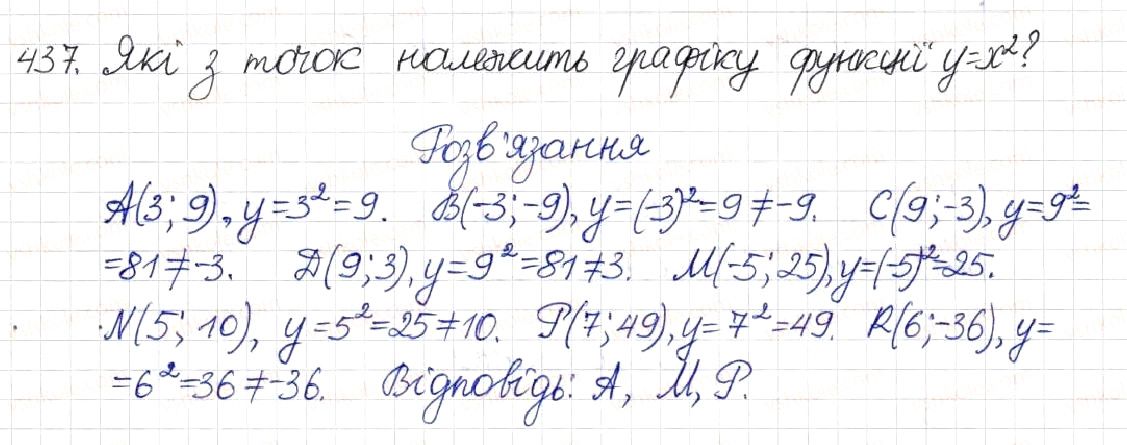 437. Які з точок належить графіку функції y=x²?
Розв'язання
A(3; 9), y=3²=9. B(-3;-9), y=(-3)²=9≠-9. C(9;-3), y=9²=
=81≠-3. D(9;3), y=9²=81≠3. M(-5;25), y=(-5)²=25.
N(5; 10), y=5²=25≠10. P(7;49), y=7²=49. R(6;-36), y=
=6²=36≠-36. Відповідь: A, M, P.